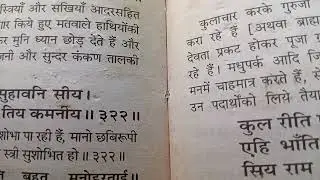 स्त्रियाँ और सखियाँ आदरसहित
गार किये हुए मतवाले हाथियोंकी
कर मुनि ध्यान छोड़ देते हैं और
जनी और सुन्दर कंकण तालकी
सुहावनि सीय।
तिय कमनीय॥ ३२२॥
शोभा पा रही हैं, मानो छबिरूपी
स्त्री सुशोभित हो॥ ३२२॥
बहुत मनोहरताई॥
कुलाचार करके गुरुजी
करा रहे हैं [अथवा ब्राह्म
देवता प्रकट होकर पूजा ग्र
रहे हैं। मधुपर्क आदि जि
मनमें चाहमात्र करते हैं, से
उन पदार्थोंको लिये तैया
कुल रीति प
एहि भाँति
सिय राम